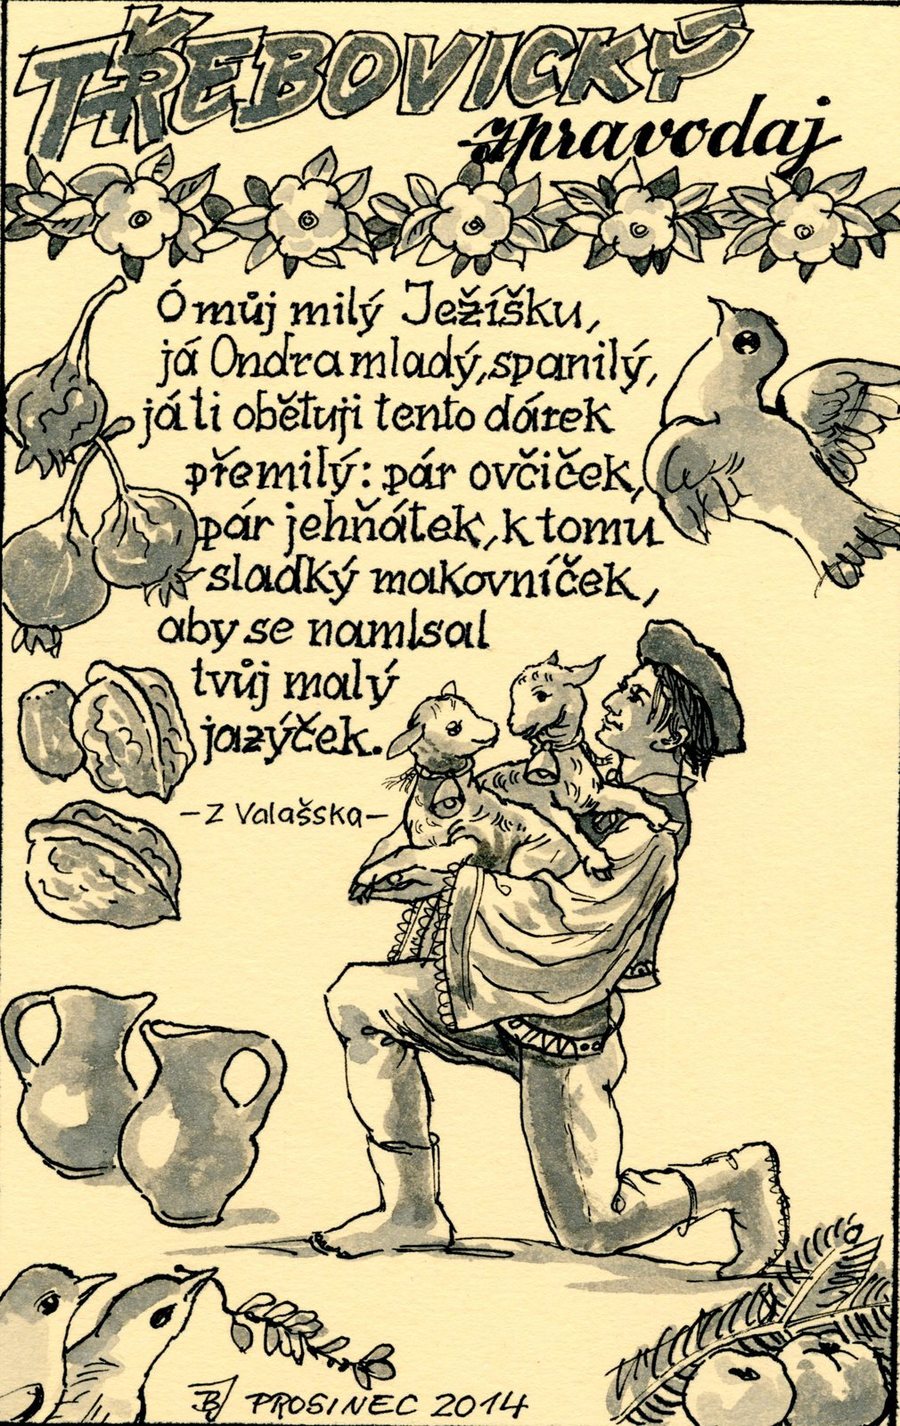 TŘEBOVICKÝ
zpravodaj
Ó můj milý Ježíšku,
já Ondra mladý, spanilý,
já ti obětuji tento dárek
přemilý: pár ovčiček,
pár jehňátek, k tomu
sladký makovníček,
aby se namlsal
tvůj malý
jazýček.
- Z Valašska -
PROSINEC 2014